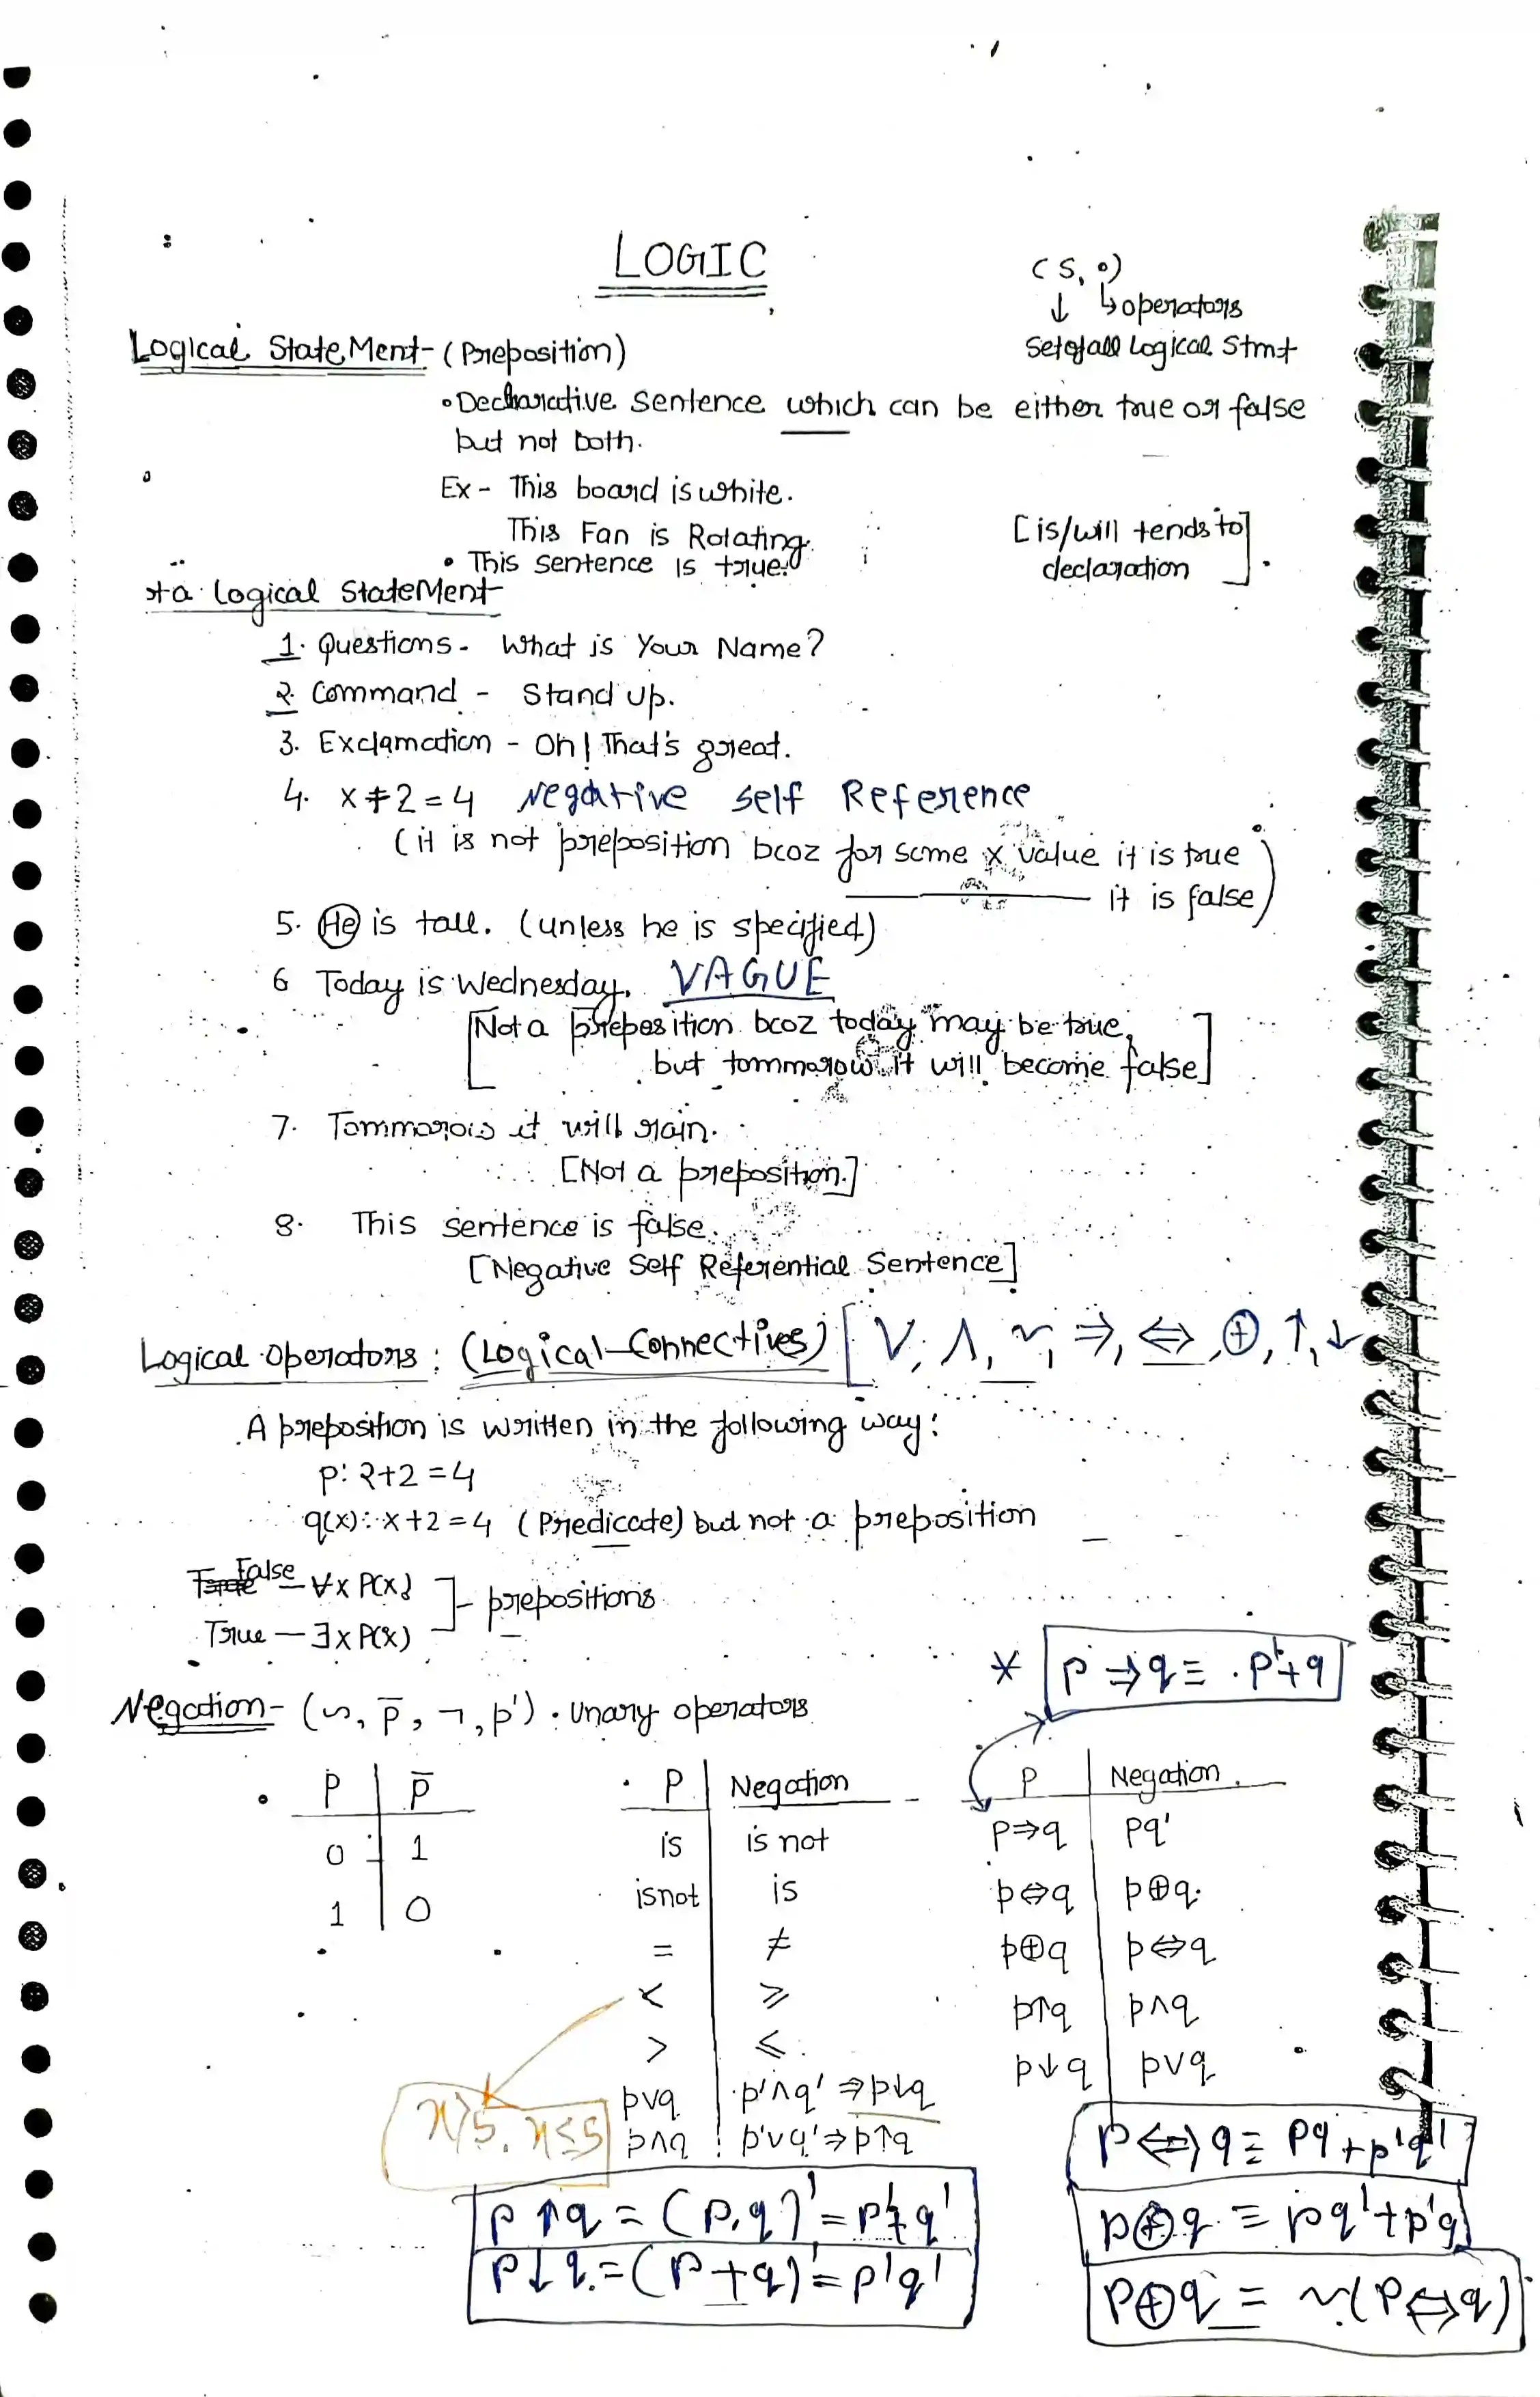 LOGIC
(S, o)
↓ ↳operators
Set of all Logical Stmt
Logical StateMent- (Preposition)
•Declarative Sentence which can be either true or false
but not both.
Ex- This board is white.
This Fan is Rotating.
[is/will tends to
declaration].
• This sentence is true.
Logical StateMent
1. Questions- What is Your Name?
2. Command - Stand up.
3. Exclamation - Oh! That's great.
4. x+2=4 Negative self Reference
(it is not preposition bcoz for some x value it is true
it is false)
5. He is tall. (unless he is specified)
6 Today is Wednesday. VAGUE
[Not a preposition bcoz today may be true,
but tommarow it will become false]
7. Tommarow it will rain.
[Not a preposition.]
8. This sentence is false.
[Negative Self Referential Sentence]
Logical Operators: (Logical Connectives) [∨, ∧, ~, ⇒, ⇔, ⊕, ↑, ↓
A preposition is written in the following way:
p: 2+2=4
q(x): x+2=4 (Predicate) but not a preposition
False – ∀x P(x)
True – ∃x P(x)
]- prepositions
* p ⇒ q ≡ p'+q
Negation- (~, p̅, ¬, p') • Unary operators
• P | p̅
0 | 1
1 | 0
• P | Negation
is | is not
isnot | is
= | ≠
< | ⩾
> | ⩽
p∨q | p'∧q' ⇒ p↓q
p∧q | p'∨q' ⇒ p↑q
P | Negation
p⇒q | pq'
p⇔q | p⊕q
p⊕q | p⇔q
p↑q | p∧q
p↓q | p∨q
x>5, x≤5
p ↑ q = (p.q)' = p'+q'
p ↓ q = (p+q)' = p'q'
p⇔q ≡ pq+p'q'
p⊕q ≡ pq'+p'q
p⊕q ≡ ~(p⇔q)